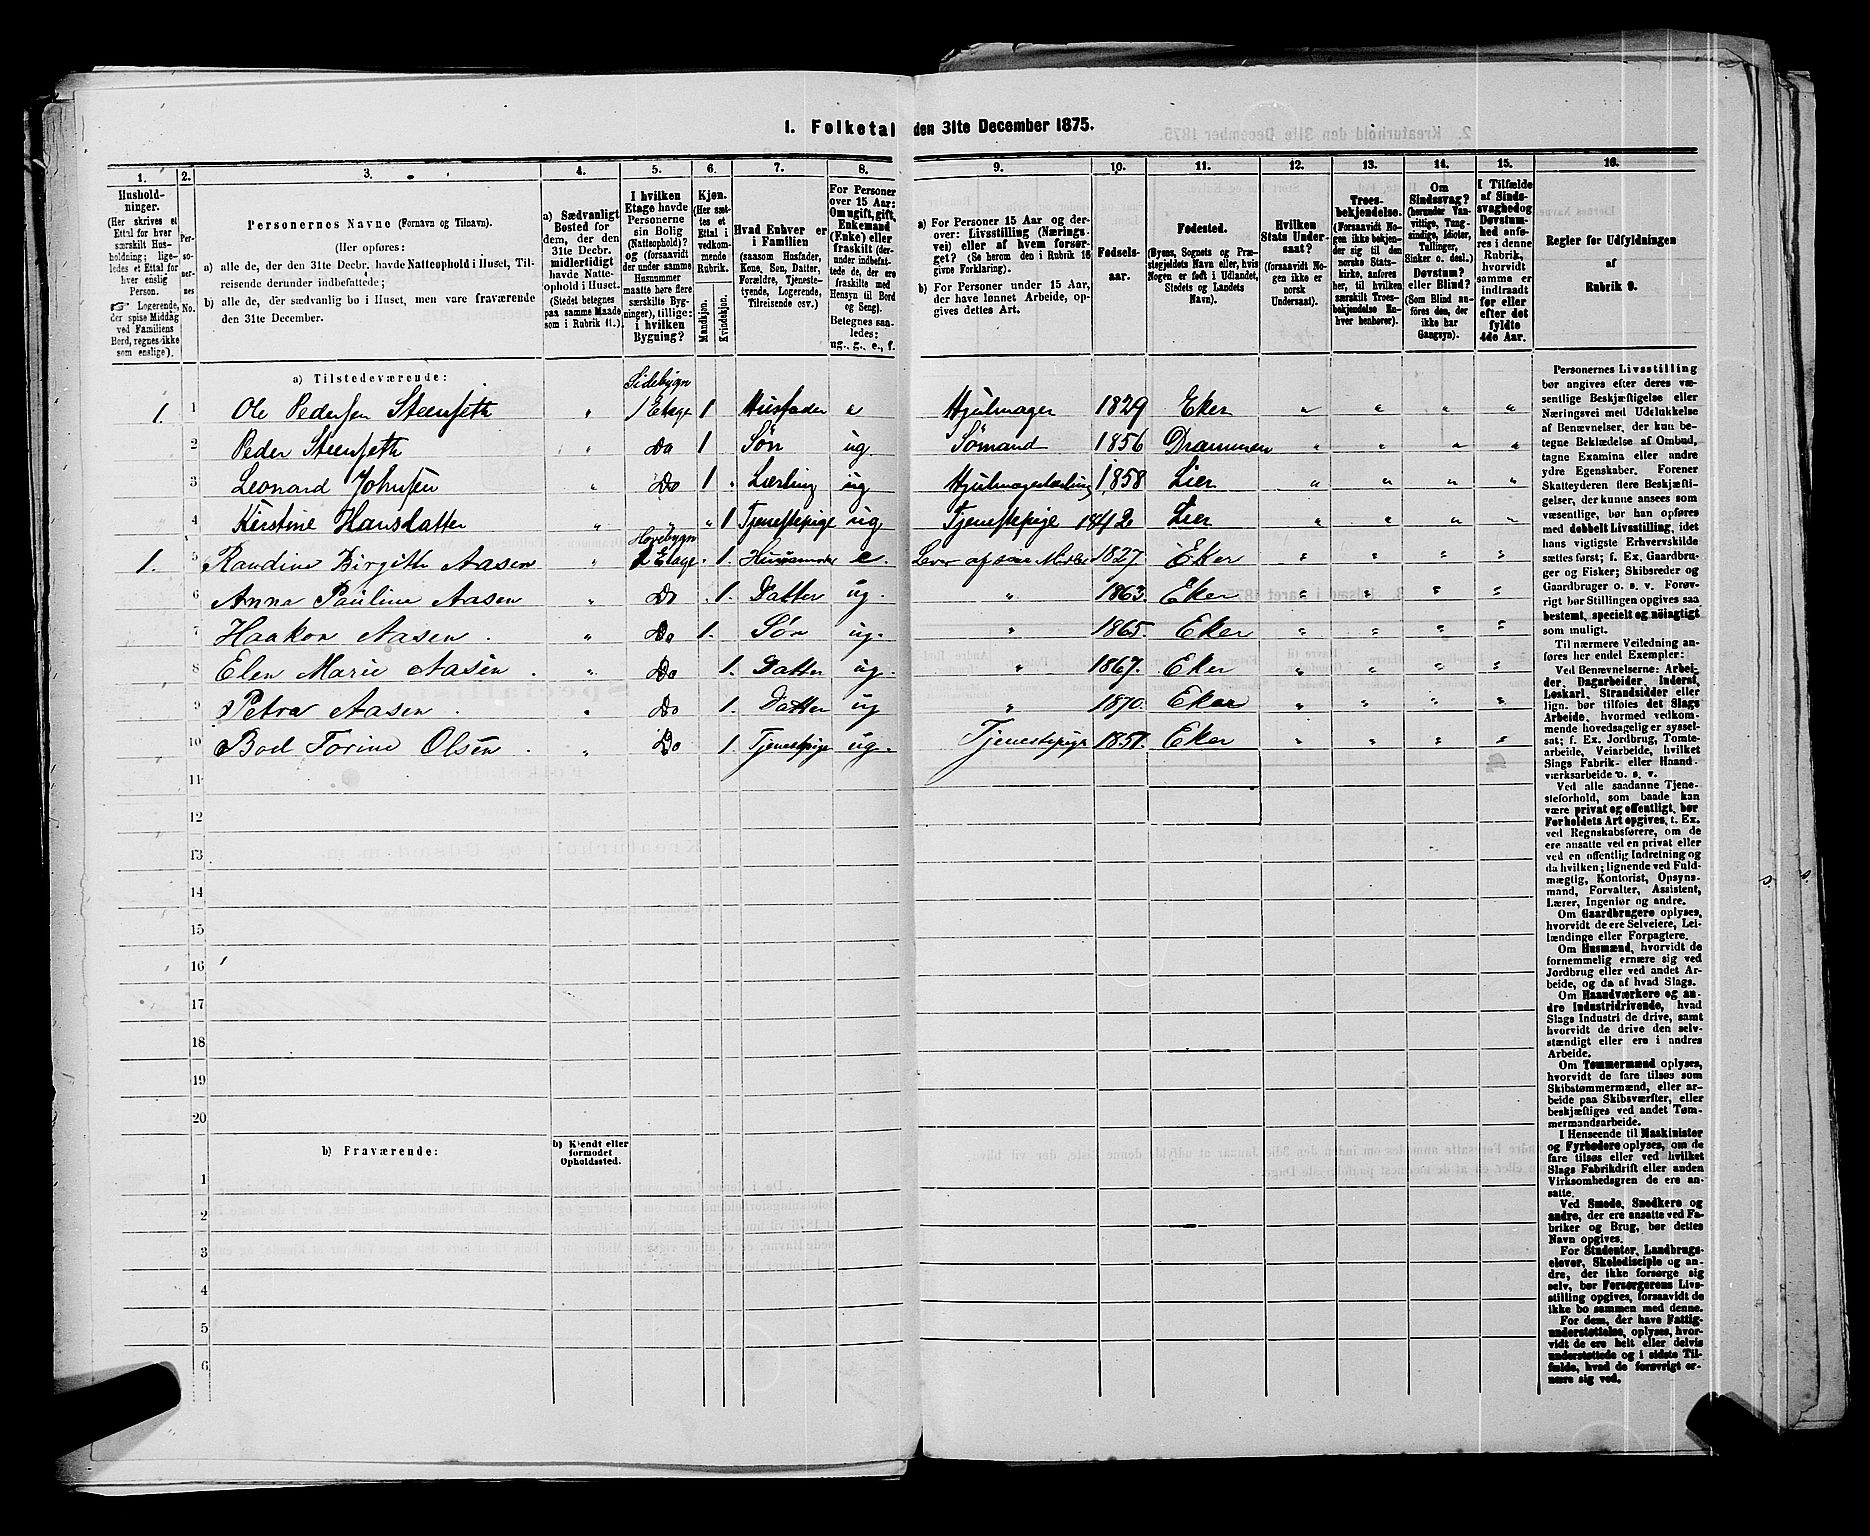 1. Folketal den 31te December 1875.
1. 2. 3. 4. 5. 6. 7. 8. 9. 10. 11. 12. 13. 14. 15. 16.
Husholdninger.
(Her skrives et
Ettal for hver
særskilt Husholdning;
ligeledes et Ettal for
hver enslig
Person.
Logerende,
der spise Middag
ved Familiens
Bord, regnes ikke
som enslige).
Personernes No.
Personernes Navne (Fornavn og Tilnavn).
(Her opføres:
a) alle de, der den 31te Decbr. havde Natteophold i Huset, Tilreisende derunder indbefattede;
b) alle de, der sædvanlig bo i Huset, men vare fraværende
den 31te December.
a) Sædvanligt
Bosted for
dem, der den
31te Decbr.
midlertidigt
havde Natteophold i Huset.
(Stedet betegnes
paa samme Maade
som i Rubrik 11.).
I hvilken
Etage havde
Personerne
sin Bolig
(Natteophold)?
og (forsaavidt
der under samme
Husnummer
maatte høre flere
særskilte Bygninger), tillige:
i hvilken
Bygning?
Kjøn.
(Her sættes et
Ettal i
vedkommende
Rubrik.
Mandkjøn.
Kvindekjøn.
Hvad Enhver er
i Familien
(saasom Husfader,
Kone, Søn, Datter,
Forældre, Tjenestetyende, Logerende,
Tilreisende osv.)
For Personer
over 15 Aar:
Om ugift, gift,
Enkemand
(Enke) eller
fraskilt (derunder indbefattede de, der ere
fraskilte med
Hensyn til Bord
og Seng).
Betegnes saaledes:
ug., g., e., f.
a) For Personer 15 Aar og derover: Livsstilling (Næringsvei) eller af hvem forsørget? (Se herom den i Rubrik 16
givne Forklaring).
b) For Personer under 15 Aar,
der have lønnet Arbeide, opgives dettes Art.
Fødselsaar.
Fødested.
(Byens, Sognets og Præstegjeldets Navn eller, hvis
Nogen er født i Udlandet,
Stedets og Landets
Navn).
Hvilken
Stats Undersaat?
(forsaavidt Nogen ikke er
norsk
Undersaat).
Troesbekjendelse.
(Forsaavidt Nogen ikke bekjender sig til den
norske Statskirke, anføres
her, til hvilken
særskilt Troesbekjendelse Enhver henhører).
Om
Sindssvag?
(herunder Vanvittige, Tungsindige, Idioter,
Tullinger,
Sinker o. desl.)
Døvstum?
eller Blind?
(Som Blind anføres den, der
ikke har
Gangsyn).
I Tilfælde
af Sindssvaghed og
Døvstumhed anføres
i denne
Rubrik,
hvorvidt
samme er
indtraadt
før eller
efter det
fyldte
4de Aar.
Regler for Udfyldningen
af
Rubrik 9.
a) Tilstedeværende:
Sidebygn
1. 1 Ole Pedersen Steenseth „ 1 Etage 1 Husfader e Hjulmager 1829 Eker „ „ „ „
2 Peder Steenseth „ Do 1 Søn ug Sømand 1856 Drammen „ „ „ „
3 Leonard Johnsen „ Do 1 „ Lærling ug Hjulmagerlærling 1858 Lier „ „ „ „
4 Kirstine Hansdatter „ „ „ 1 Tjenestepige ug Tjenestepige 1842 Lier „ „ „ „
Hovebygn
1. 5 Randine Birgitte Aasen „ Etage 1. Husmoder e. Lever af sine Midler 1827. Eker „ „ „ „
6 Anna Pauline Aasen „ Do 1. Datter ug. „ 1863. Eker „ „ „ „
7 Haakon Aasen „ Do 1. Søn ug. „ 1865. Eker „ „ „ „
8 Elen Marie Aasen „ Do 1. Datter ug. „ 1867. Eker „ „ „ „
9 Petra Aasen „ Do 1. Datter ug „ 1870. Eker „ „ „ „
10 Torine Olsen „ Do 1. Tjenestepige ug. Tjenestepige Eker „ „ „ „
11
12
13
14
15
16
17
18
19
20
b) Fraværende:
b) Kjendt eller
formodet
Opholdssted.
1
2
3
4
5
6
Personernes Livsstilling
bør angives efter deres væsentlige Beskjæftigelse eller
Næringsvei med Udelukkelse
af Benævnelser, der kun betegne Beklædelse af Ombud,
tagne Examina eller andre
ydre Egenskaber. Forener
Skatteyderen flere Beskjæftigelser, der kunne ansees som
væsentlige, bør han opføres
med dobbelt Livsstilling, idet
hans vigtigste Erhvervskilde
sættes først; f. Ex. Gaardbruger og Fisker; Skibsreder og
Gaardbruger o. s. v. Forøvrigt bør Stillingen opgives saa
bestemt, specielt og nøiagtigt
som muligt.
Til nærmere Veiledning anføres her endel Exempler:
Ved Benævnelserne: Arbeider, Dagarbeider, Inderst,
Løskarl, Strandsidder eller
lign. bør tilføies det Slags
Arbeide, hvormed vedkommende hovedsagelig er sysselsat; f. Ex. Jordbrug, Tomtearbeide, Veiarbeide, hvilket
Slags Fabrik- eller Haandværksarbeide o. s. v.
Ved alle saadanne Tjenesteforhold, som baade kan
være privat og offentligt, bør
Forholdets Art opgives, t. Ex.
ved Regnskabsførere, om de
ere ansatte ved en privat eller
ved en offentlig Indretning og
da hvilken; lignende ved Fuldmægtig, Kontorist, Opsynsmand, Forvalter, Assistent,
Lærer, Ingeniør og andre.
Om Gaardbrugere oplyses,
hvorvidt de ere Selveiere, Leilændinge eller Forpagtere.
Om Husmænd, hvorvidt de
fornemmelig ernære sig ved
Jordbrug eller ved andet Arbeide, og da af hvad Slags.
Om Haandværkere og andre Industridrivende, hvad
Slags Industri de drive, samt
hvorvidt de drive den selvstændigt eller ere i andres
Arbeide.
Om Tømmermænd oplyses,
hvorvidt de fare tilsøs som
Skibstømmermænd, eller arbeide paa Skibsværfter, eller
beskjæftiges ved andet Tømmermandsarbeide.
I Henseende til Maskinister
og Fyrbødere oplyses, om de
fare tilsøs eller ved hvilket
Slags Fabrikdrift eller anden
Virksomhedsgren de ere ansatte.
Ved Smede, Snedkere og
andre, der ere ansatte ved Fabriker og Brug, bør dettes
Navn opgives.
For Studenter, Landbrugselever, Skoledisciple og andre, der ikke forsørge sig
selv, bør Forsørgerens Livsstilling opgives, forsaavidt de
ikke bo sammen med denne.
For dem, der have Fattigunderstøttelse, oplyses, hvorvidt de ere helt eller delvis
understøttede og i sidste Tilfælde, hvad de forøvrigt ernære sig ved.